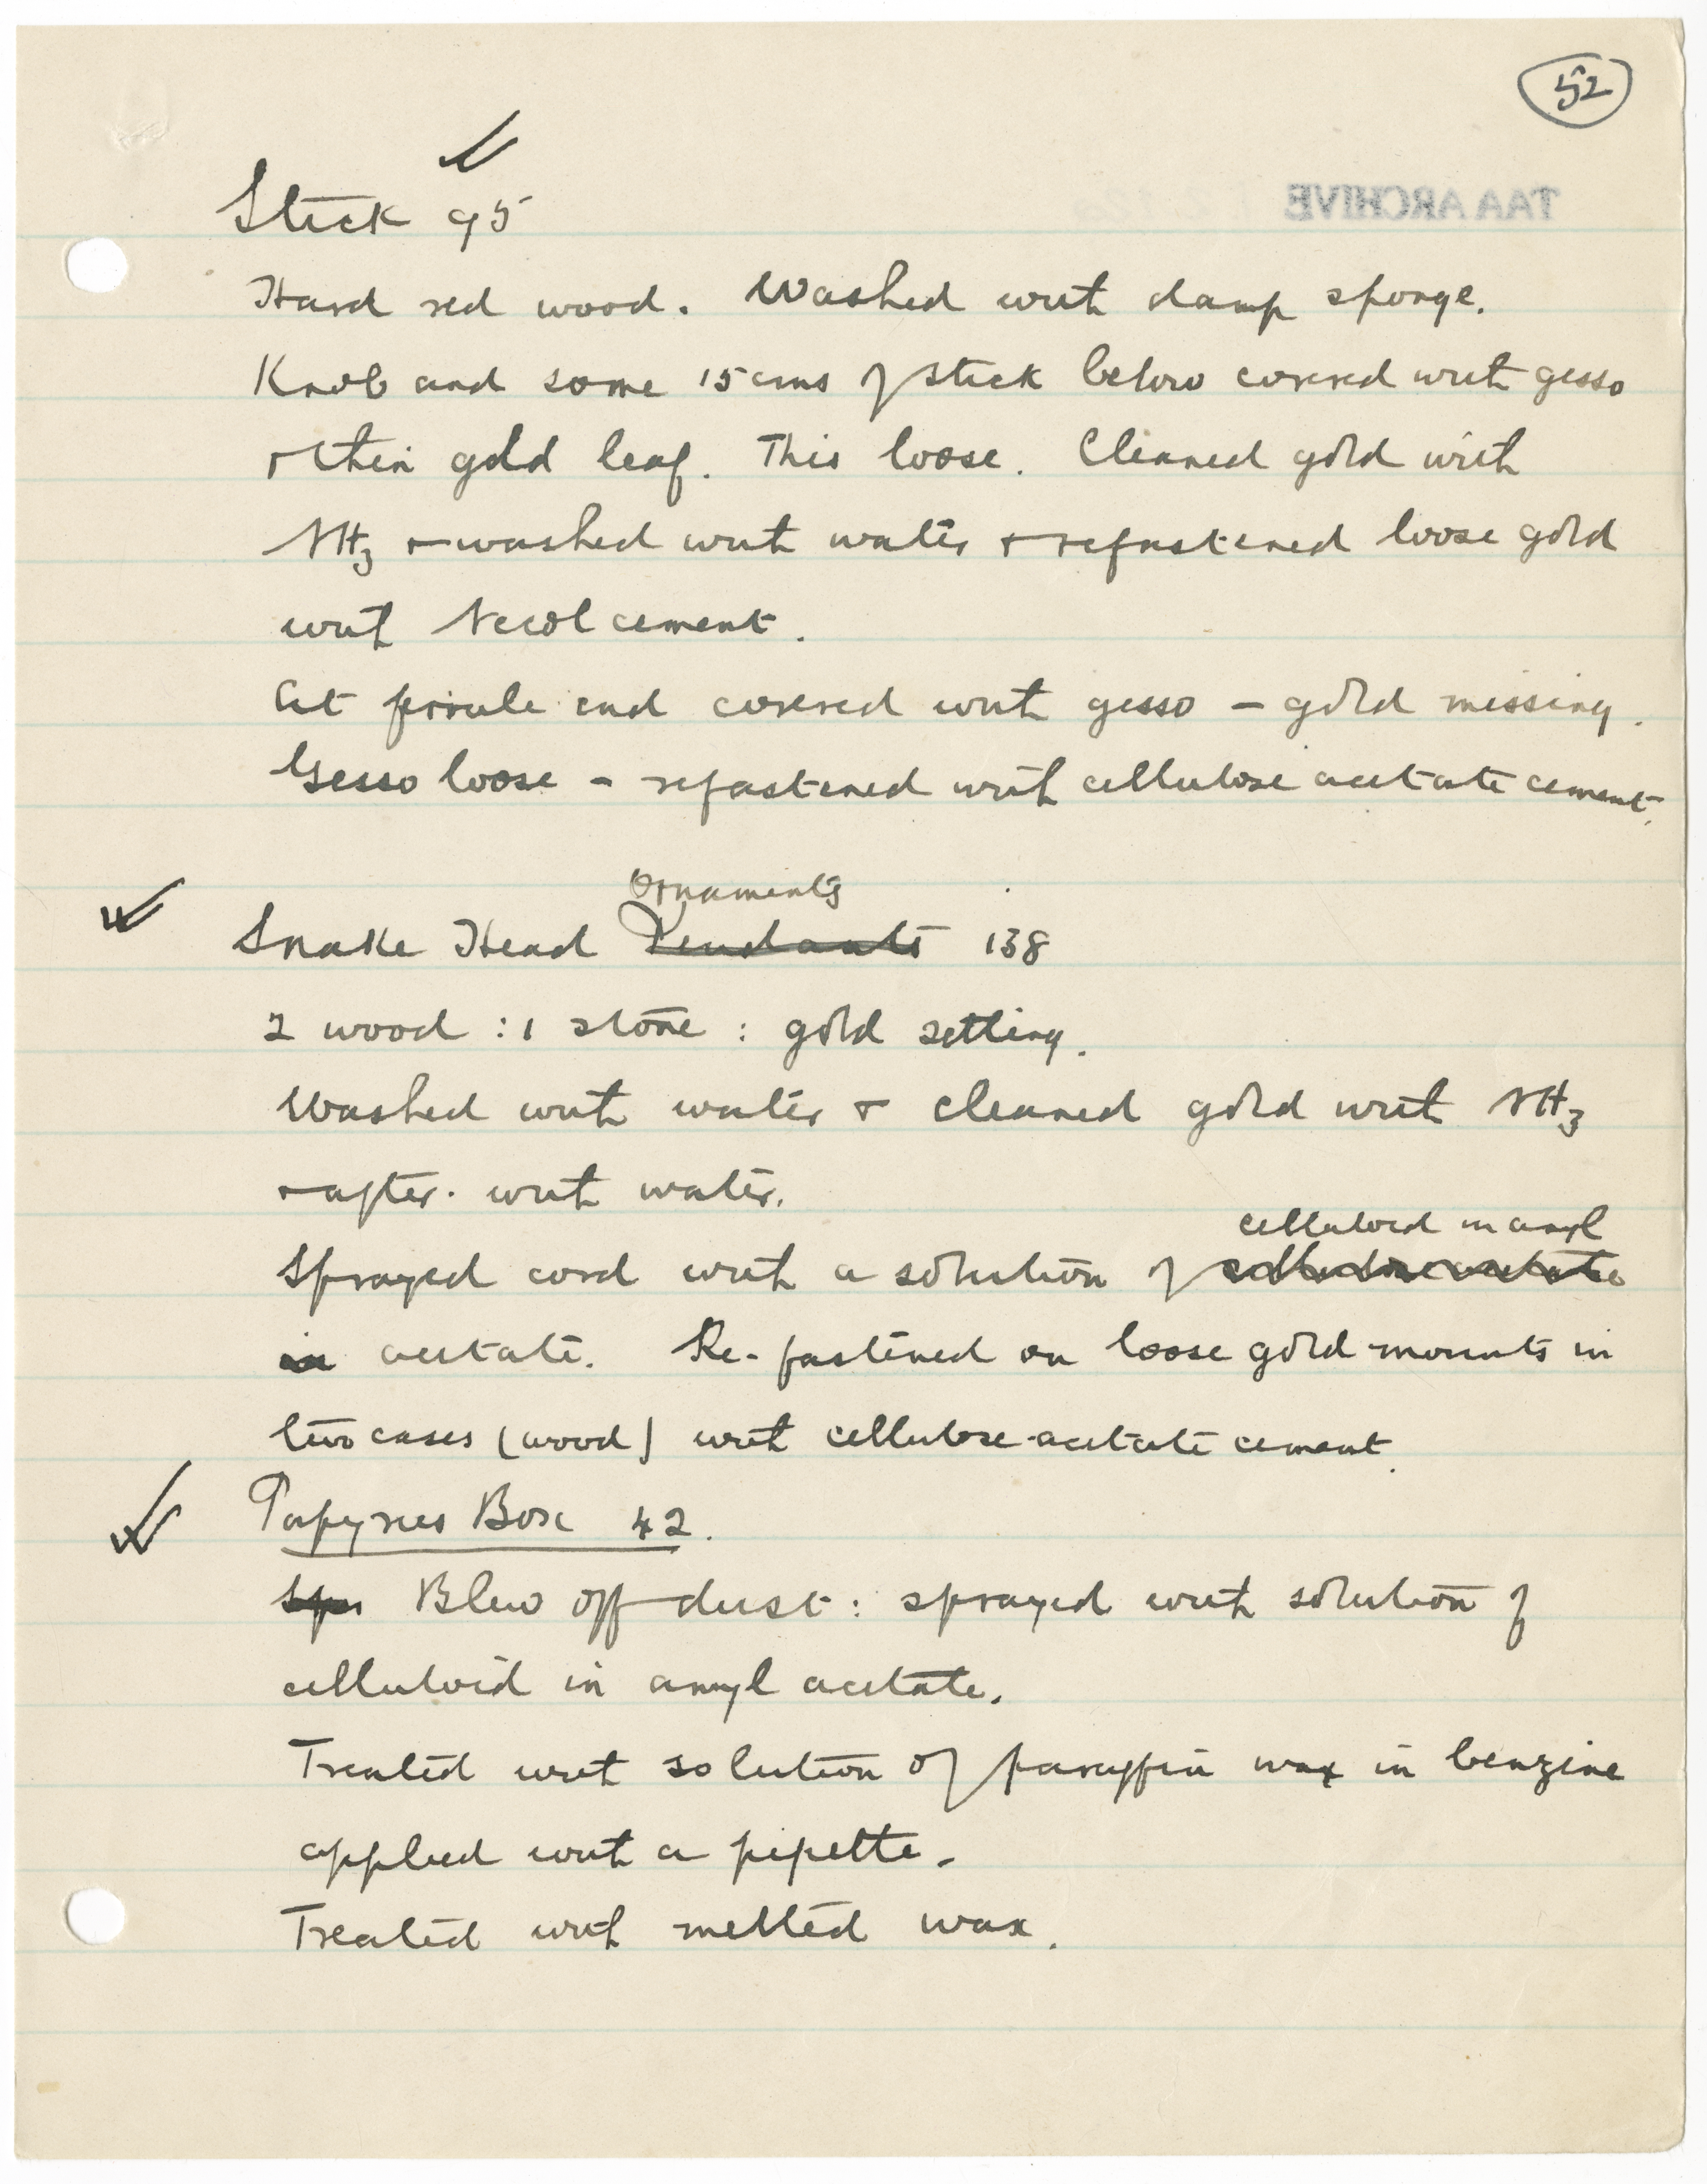 52
TAA ARCHIVE
Stick 95
Hard red wood. Washed with damp sponge.
Knob and some 15 cms of stick below covered with gesso
& thin gold leaf. This loose. Cleaned gold with
NH3 & washed with water & refastened loose gold
with Necol cement.
At ferrule end covered with gesso - gold missing.
Gesso loose - refastened with cellulose acetate cement.
Ornaments
Snake Head Pendants 138
2 wood : 1 stone : gold setting.
Washed with water & cleaned gold with NH3
& after. with water.
celluloid in amyl
Sprayed cord with a solution of cellulose acetate
in acetate. Re-fastened on loose gold mounts in
two cases (wood) with cellulose acetate cement.
Papyrus Box 42.
Spr Blew off dust : sprayed with solution of
celluloid in amyl acetate.
Treated with solution of paraffin wax in benzine
applied with a pipette.
Treated with melted wax.